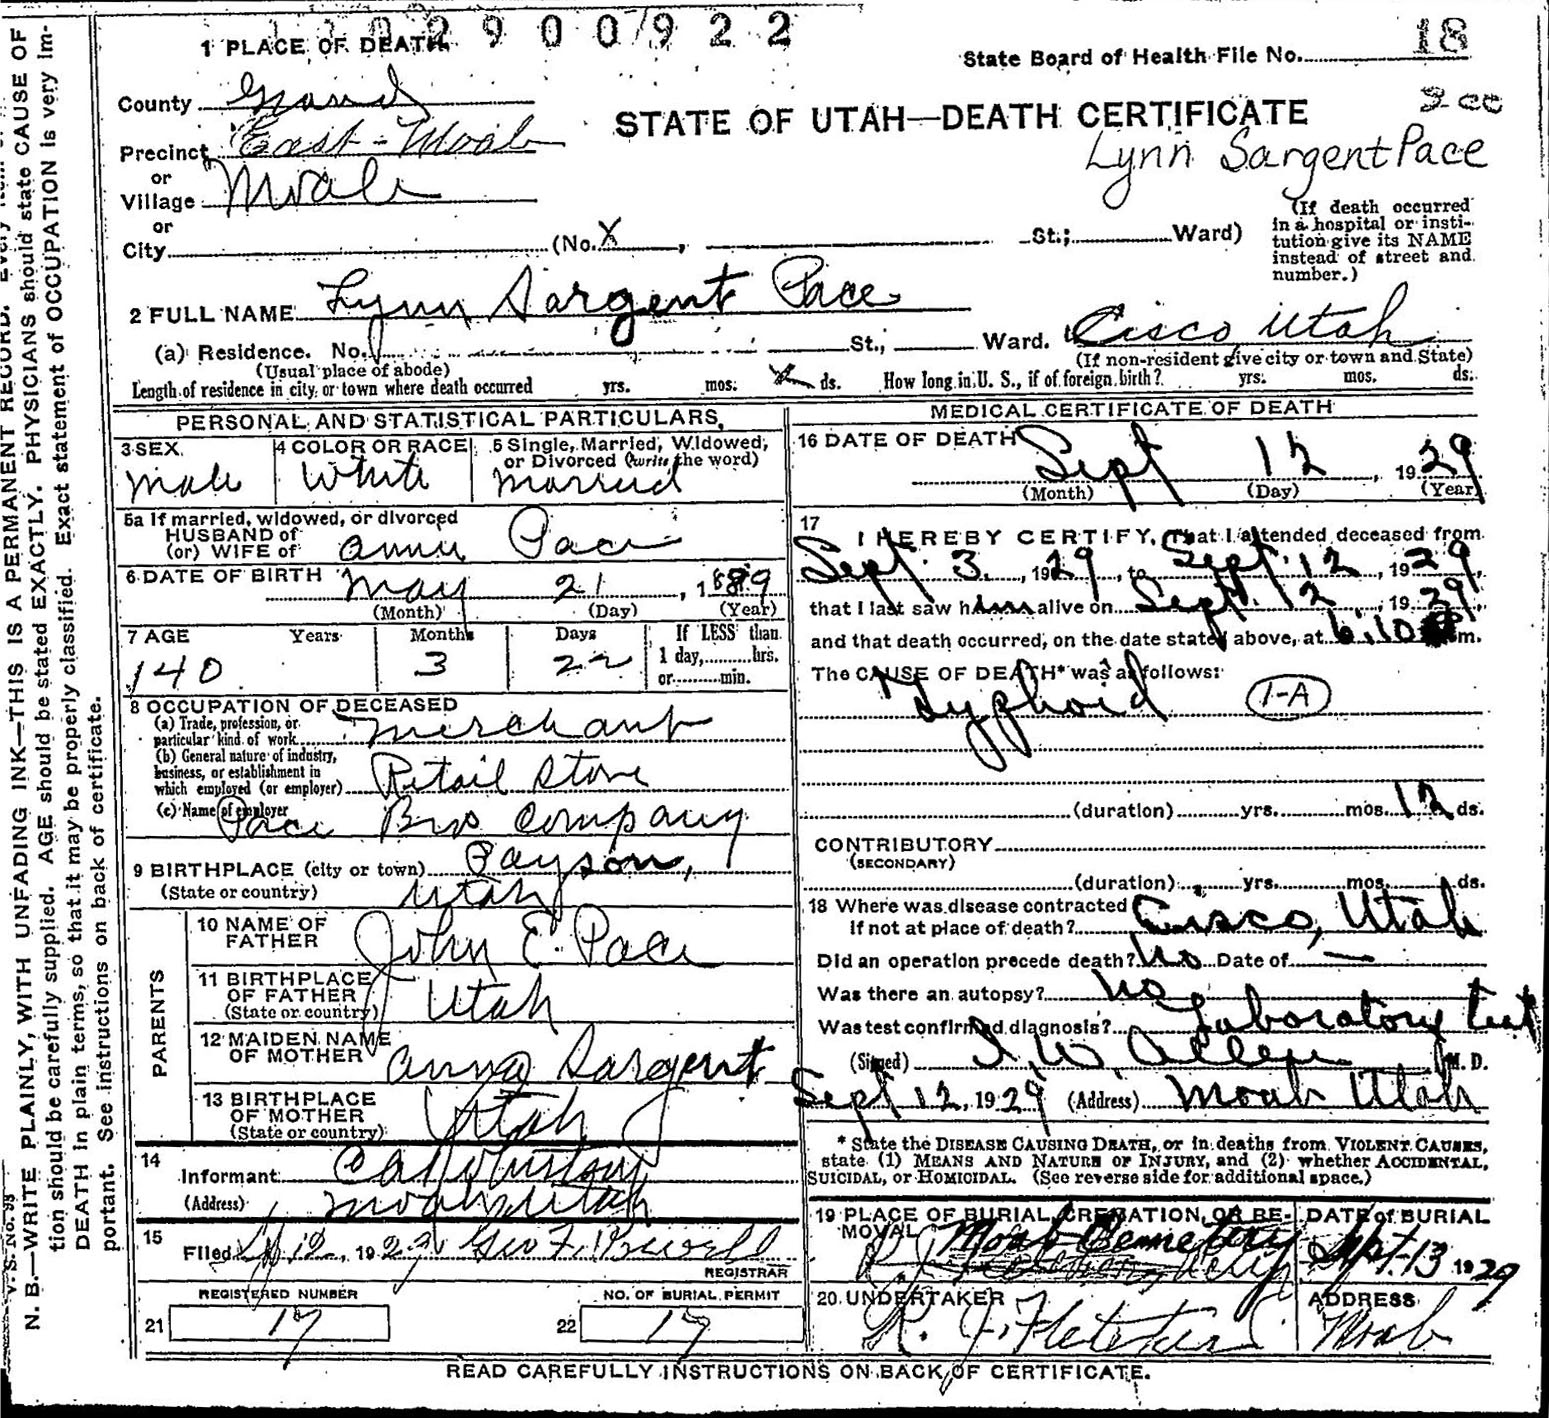 2900922
1 PLACE OF DEATH
State Board of Health File No. 18
County Grand
STATE OF UTAH—DEATH CERTIFICATE
Precinct East-Moab
Lynn Sargent Pace
or
Village Moab
or
City (No. X , St.; Ward)
(If death occurred
in a hospital or insti-
tution give its NAME
instead of street and
number.)
2 FULL NAME Lynn Sargent Pace
(a) Residence. No. St., Ward. Cisco Utah
(Usual place of abode) (If non-resident give city or town and State)
Length of residence in city or town where death occurred yrs. mos. ds. How long in U. S., if of foreign birth? yrs. mos. ds.
PERSONAL AND STATISTICAL PARTICULARS,
3 SEX 4 COLOR OR RACE 5 Single, Married, Widowed,
or Divorced (write the word)
Male White Married
5a If married, widowed, or divorced
HUSBAND of
(or) WIFE of Pace
6 DATE OF BIRTH May 21, 1889
(Month) (Day) (Year)
7 AGE Years Months Days If LESS than
1 day, hrs.
or min.
140 3 22
8 OCCUPATION OF DECEASED
(a) Trade, profession, or
particular kind of work Merchant
(b) General nature of industry,
business, or establishment in
which employed (or employer) Retail Store
(c) Name of employer
Pace Bros Company
9 BIRTHPLACE (city or town) Payson,
(State or country) Utah
PARENTS
10 NAME OF
FATHER John E. Pace
11 BIRTHPLACE
OF FATHER
(State or country) Utah
12 MAIDEN NAME
OF MOTHER Anna Sargent
13 BIRTHPLACE
OF MOTHER
(State or country) Utah
14
Informant
(Address) Moab, Utah
15
Filed 12, 1929 Geo F.
REGISTRAR
REGISTERED NUMBER NO. OF BURIAL PERMIT
21 17 22 17
MEDICAL CERTIFICATE OF DEATH
16 DATE OF DEATH Sept 12, 1929
(Month) (Day) (Year)
17
I HEREBY CERTIFY, That I attended deceased from
Sept. 3, 1929, to Sept. 12, 1929,
that I last saw him alive on Sept. 12, 1929,
and that death occurred, on the date stated above, at 6:10 m.
The CAUSE OF DEATH* was as follows:
Typhoid 1-A
(duration) yrs. mos. 12 ds.
CONTRIBUTORY
(SECONDARY)
(duration) yrs. mos. ds.
18 Where was disease contracted
If not at place of death? Cisco, Utah
Did an operation precede death? No Date of —
Was there an autopsy? No
Was test confirmed diagnosis? Laboratory test
(Signed) I. W. Allen M. D.
Sept 12, 1929 (Address) Moab Utah
* State the DISEASE CAUSING DEATH, or in deaths from VIOLENT CAUSES,
state (1) MEANS AND NATURE OF INJURY, and (2) whether ACCIDENTAL,
SUICIDAL, or HOMICIDAL. (See reverse side for additional space.)
19 PLACE OF BURIAL, CREMATION, OR RE- DATE of BURIAL
MOVAL Moab Cemetery Sept. 13 1929
20 UNDERTAKER ADDRESS
R. J. Fletcher Moab
READ CAREFULLY INSTRUCTIONS ON BACK OF CERTIFICATE.
V. S. No. 98
N. B.—WRITE PLAINLY, WITH UNFADING INK—THIS IS A PERMANENT RECORD.
tion should be carefully supplied. AGE should be stated EXACTLY. PHYSICIANS should state CAUSE OF
DEATH in plain terms, so that it may be properly classified. Exact statement of OCCUPATION is very im-
portant. See instructions on back of certificate.